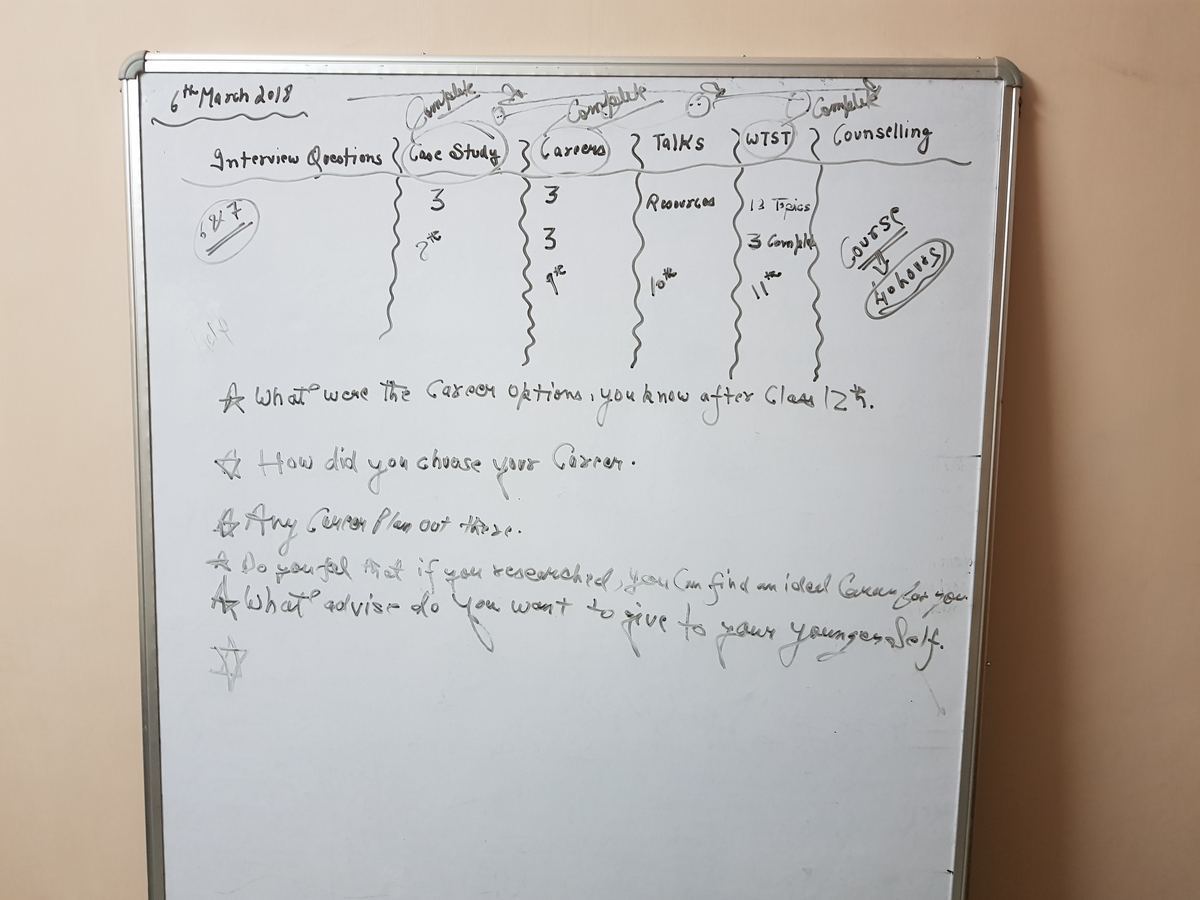 6th March 2018
Complete Complete Complete
Interview Questions Case Study Careers Talks WTST Counselling
3 3 Resources 13 Topics
6 & 7 3 3 Comple Course
9th 10th 11th 40 hours
What were the Career options, you know after Class 12th.
How did you choose your Career.
Any Career Plan out there.
Do you feel that if you researched, you Can find an ideal Career for you
What advise do you want to give to your younger Self.